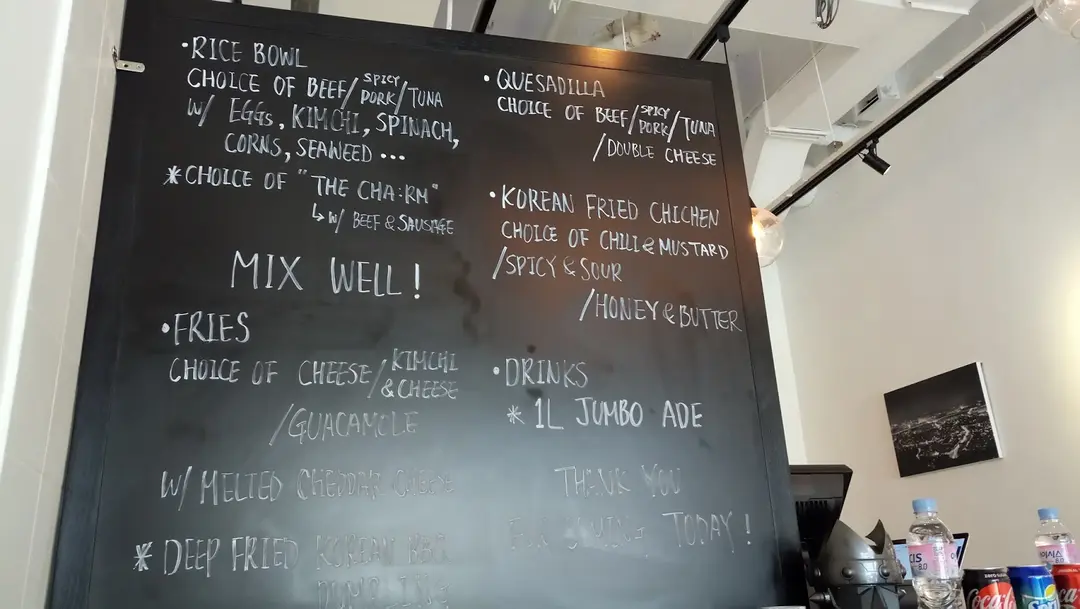 •RICE BOWL
CHOICE OF BEEF/SPICY PORK/TUNA
W/ EGGS, KIMCHI, SPINACH,
CORNS, SEAWEED •••
*CHOICE OF "THE CHA:RM"
↳ W/ BEEF & SAUSAGE
MIX WELL!
•FRIES
CHOICE OF CHEESE/KIMCHI & CHEESE
/GUACAMOLE
W/ MELTED CHEDDAR CHEESE
* DEEP FRIED KOREAN BBQ
DUMPLING
• QUESADILLA
CHOICE OF BEEF/SPICY PORK/TUNA
/DOUBLE CHEESE
•KOREAN FRIED CHICHEN
CHOICE OF CHILI & MUSTARD
/SPICY & SOUR
/HONEY & BUTTER
•DRINKS
* 1L JUMBO ADE
THANK YOU
TODAY!
8.0
Coca-Cola
8.0